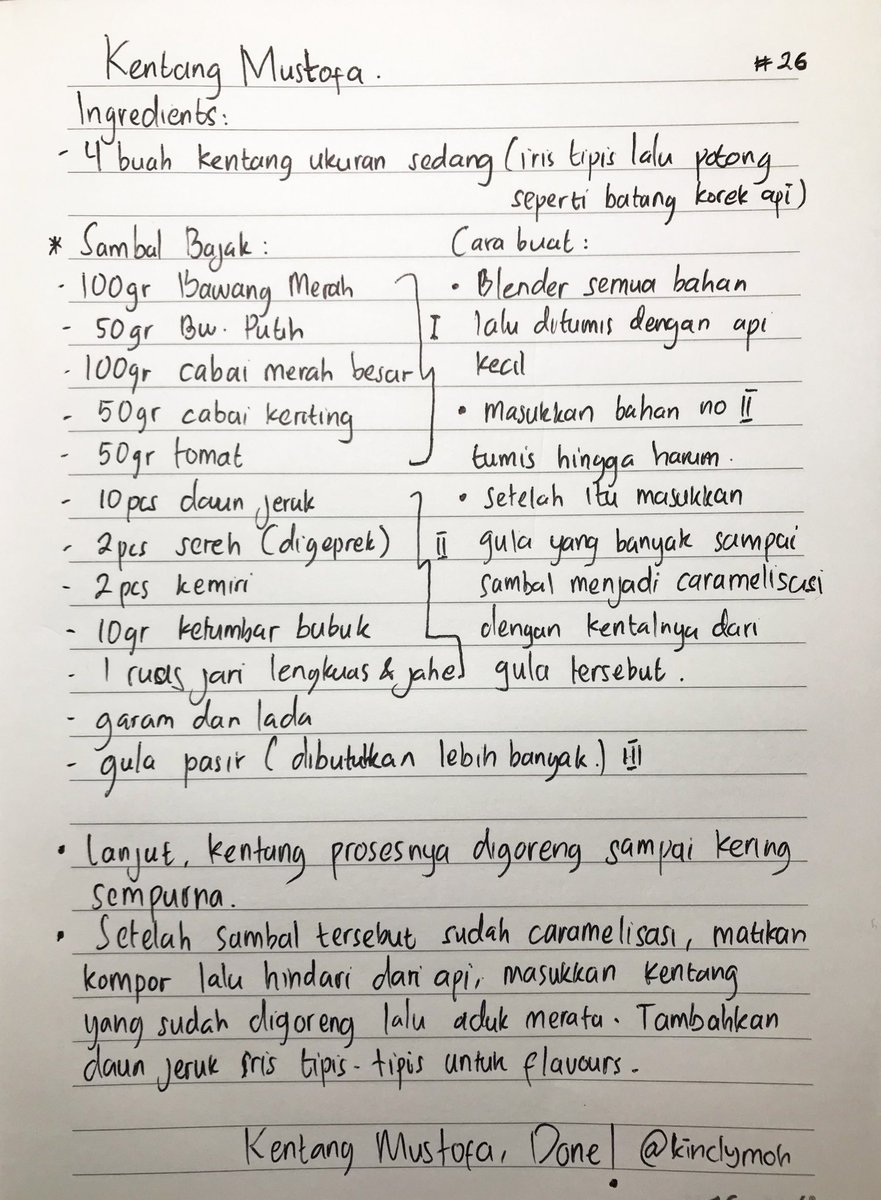 Kentang Mustofa.
#26
Ingredients:
- 4 buah kentang ukuran sedang (iris tipis lalu potong
seperti batang korek api)
* Sambal Bajak:
- 100gr Bawang Merah
- 50gr Bw. Putih
- 100gr cabai merah besar
- 50gr cabai keriting
- 50gr tomat
I
- 10 pcs daun jeruk
- 2 pcs sereh (digeprek)
- 2 pcs kemiri
- 10gr ketumbar bubuk
- 1 ruas jari lengkuas & jahe
II
- garam dan lada
- gula pasir (dibututkan lebih banyak.) III
Cara buat:
• Blender semua bahan
lalu ditumis dengan api
kecil
• masukkan bahan no II
tumis hingga harum.
• setelah itu masukkan
gula yang banyak sampai
sambal menjadi caramelisasi
dengan kentalnya dari
gula tersebut.
• Lanjut, kentang prosesnya digoreng sampai kering
sempurna.
• Setelah sambal tersebut sudah caramelisasi, matikan
kompor lalu hindari dari api, masukkan kentang
yang sudah digoreng lalu aduk merata. Tambahkan
daun jeruk iris tipis-tipis untuk flavours.
Kentang Mustofa, Done! @kindymoh